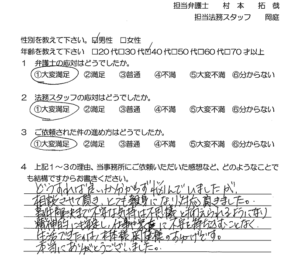 担当弁護士 村本 拓哉
担当法務スタッフ 岡庭
性別を教えて下さい ☑男性 □女性
年齢を教えて下さい □20代□30代☑40代□50代□60代□70才以上
1 弁護士の応対はどうでしたか。
①大変満足 ②満足 ③普通 ④不満 ⑤大変不満 ⑥分からない
2 法務スタッフの応対はどうでしたか。
①大変満足 ②満足 ③普通 ④不満 ⑤大変不満 ⑥分からない
3 ご依頼された件の進め方はどうでしたか。
①大変満足 ②満足 ③普通 ④不満 ⑤大変不満 ⑥分からない
4 上記1~3の理由、当事務所にご依頼いただいた感想など、どのようなことで
も結構ですからお書きください。
どうすれば良いか分からず悩んでいましたが
相談させて頂き、とても親身になり対応頂きました。
不安な気持ちは不思議と抑えられるようになり
精神的にも安定し、
生活できたのは村本様、岡庭様のおかげです。
本当にありがとうございました。